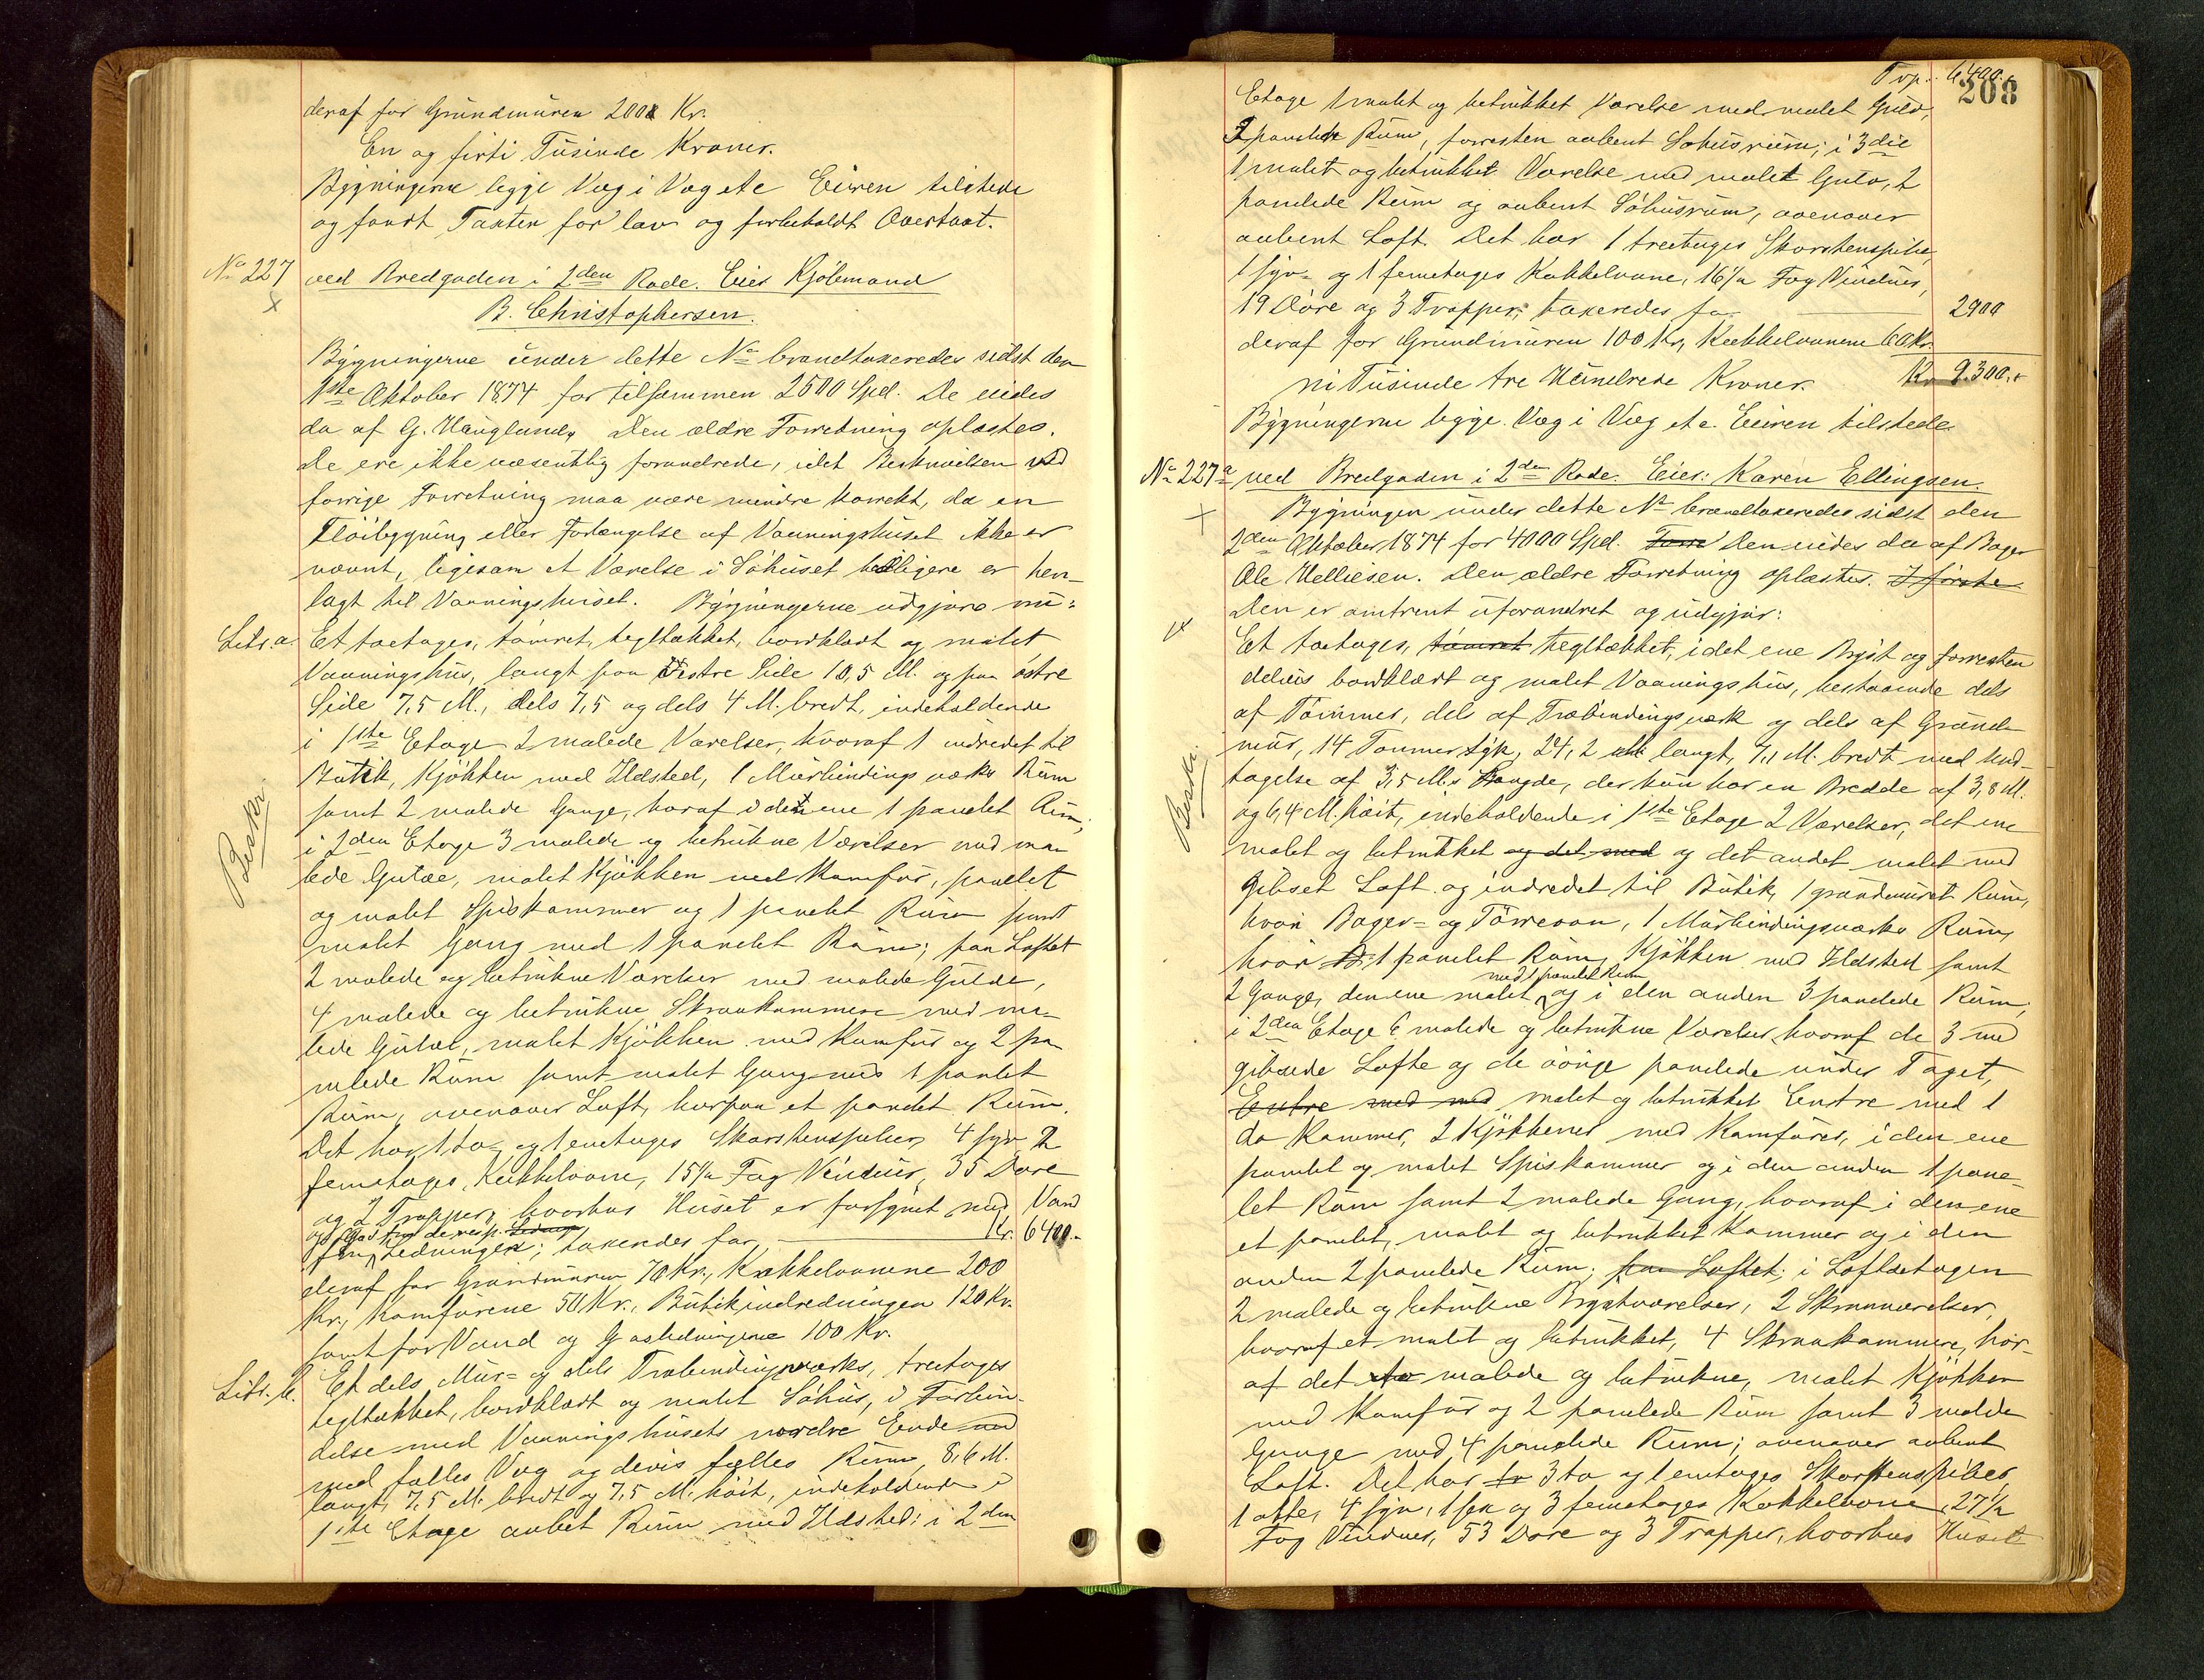 deraf for Grundmuren 2000 Kr.
En og firti Tusinde Kroner.
Bygningerne ligge Væg i Væg etc Eieren tilstede
og fandt Taxten for lav og forbeholdt Overtaxt.
No 227 ved Bredgaden i 2den Rode. Eier Kjøbmand
B. Christophersen.
Bygningerne under dette No brandtaxeredes sidst den
1ste Oktober 1874 for tilsammen 2500 Spd. De eiedes
da af G. Hauglund. Den ældre Forretning oplæstes.
De ere ikke væsentlig forandrede, idet Beskrivelsen ved
forrige Forretning maa være mindre korrekt, da en
Fløibygning eller Forlængelse af Vaaningshuset ikke er
nævnt, ligesom et Værelse i Søhuset tidligere er hen-
lagt til Vaaningshuset. Bygningerne udgjøre nu:
Litr. a. Et toetages, tømret, tegltækket, bordklædt og malet
Vaaningshus, langt paa vestre Side 10,5 M. og paa østre
Side 7,5 M., dels 7,5 og dels 4 M. bredt, indeholdende
i 1ste Etage 2 malede Værelser, hvoraf 1 indredet til
Butik, Kjøkken med Ildsted, 1 Murbindingsværks Rum
samt 2 malede Gange, hvoraf i den ene 1 panelet Rum,
i 2den Etage 3 malede og betrukne Værelser med ma-
lede Gulve, malet Kjøkken med Komfur, panelet
og malet Spiskammer og 1 panelet Rum samt
malet Gang med 1 panelet Rum; paa Loftet
2 malede og betrukne Værelser med malede Gulve,
4 malede og betrukne Skraakammere med ma-
lede Gulve, malet Kjøkken med Komfur og 2 pa-
nelede Rum samt malet Gang med 1 panelet
Rum, ovenover Loft, hvorpaa et panelet Rum.
Det har 1 to- og 1 enetages Skorstenspiber, 4 syv 2
femetages Kakkelovne, 15½ Fag Vinduer, 35 Døre
og 2 Trapper, hvorhos Huset er forsynet med Vand
og Gas fra de resp.
Ledninger; taxeredes for Kr. 6400.-
deraf for Grundmuren 70 Kr., Kakkelovnene 200
Kr., Komfurene 50 Kr., Butikindredningen 120 Kr.
samt for Vand og Gasledningerne 100 Kr.
Litr. b. Et dels Mur- og dels Træbindingsværks, treetages
tegltækket, bordklædt og malet Søhus, i Forbin-
delse med Vaaningshusets nordre Ende
med fælles Væg og delvis fælles Rum, 8,6 M.
langt, 7,5 M. bredt og 7,5 M. høit, indeholdende i
1ste Etage aabet Rum med Ildsted: i 2den
Beskr.
Trp. 6400.
208
Etage 1 malet og betrukket Værelse med malet Gulv,
2 panelede Rum, forresten aabent Søhusrum; i 3die
1 malet og betrukket Værelse med malet Gulv, 2
panelede Rum og aabent Søhusrum, ovenover
aabent Loft. Det har 1 treetages Skorstenspibe,
1 syv- og 1 femetages Kakkelovne, 16½ Fag Vinduer,
19 Døre og 3 Trapper; taxeredes for 2900
deraf for Grundmuren 100 Kr., Kakkelovnene 60 Kr.
ni Tusinde tre Hundrede Kroner. Kr. 9.300.-
Bygningerne ligge Væg i Væg etc. Eieren tilstede.
No 227a ved Bredgaden i 2den Rode. Eier: Karen Ellingsen.
Bygningen under dette No brandtaxeredes sidst den
2den Oktober 1874 for 4000 Spd. Forr Den eiedes da af Bager
Ole Helliesen. Den ældre Forretning oplæstes. I første
Den er omtrent uforandret og udgjør:
Et toetages, tømret tegltækket, i det ene Bryst og forresten
delvis bordklædt og malet Vaaningshus, bestaaende dels
af Tømmer, dels af Træbindingsværk og dels af Grund-
mur, 14 Tommer tyk, 24,2 M. langt, 7,1 M. bredt med Und-
tagelse af 3,5 M.s Længde, der kun har en Bredde af 3,8 M.
og 6,4 M. høit, indeholdende i 1ste Etage 2 Værelser, det ene
malet og betrukket og det med og det andet malet med
gibset Loft og indredet til Butik, 1 grundmuret Rum,
hvori Bager- og Tørreovn, 1 Murbindingsværks Rum,
hvori 1 panelet Rum, Kjøkken med Ildsted samt
2 Gange, den ene malet med 1 panelet Rum og i den anden 3 panelede Rum,
i 2den Etage 6 malede og betrukne Værelser, hvoraf de 3 med
gibsede Lofte og de øvrige panelede under Taget,
Entre med med malet og betrukket Entre med 1
do Kammer, 2 Kjøkkener med Komfurer, i den ene
panelet og malet Spiskammer og i den anden 1 pane-
let Rum samt 2 malede Gang, hvoraf i den ene
et panelet, malet og betrukket Kammer og i den
anden 2 panelede Rum; paa Loftet; i Loftsetagen
2 malede og betrukne Brystværelser, 2 Skraaværelser,
hvoraf et malet og betrukket, 4 Skraakammere, hvor-
af det to malede og betrukne, malet Kjøkken
med Komfur og 2 panelede Rum samt 3 malede
Gange med 4 panelede Rum; ovenover aabent
Loft. Det har to 3 to og 1 enetages Skorstenspiber,
1 otte, 4 syv, 1 sex og 3 femetages Kakkelovne, 27½
Fag Vinduer, 53 Døre og 3 Trapper, hvorhos Huset
Beskr.